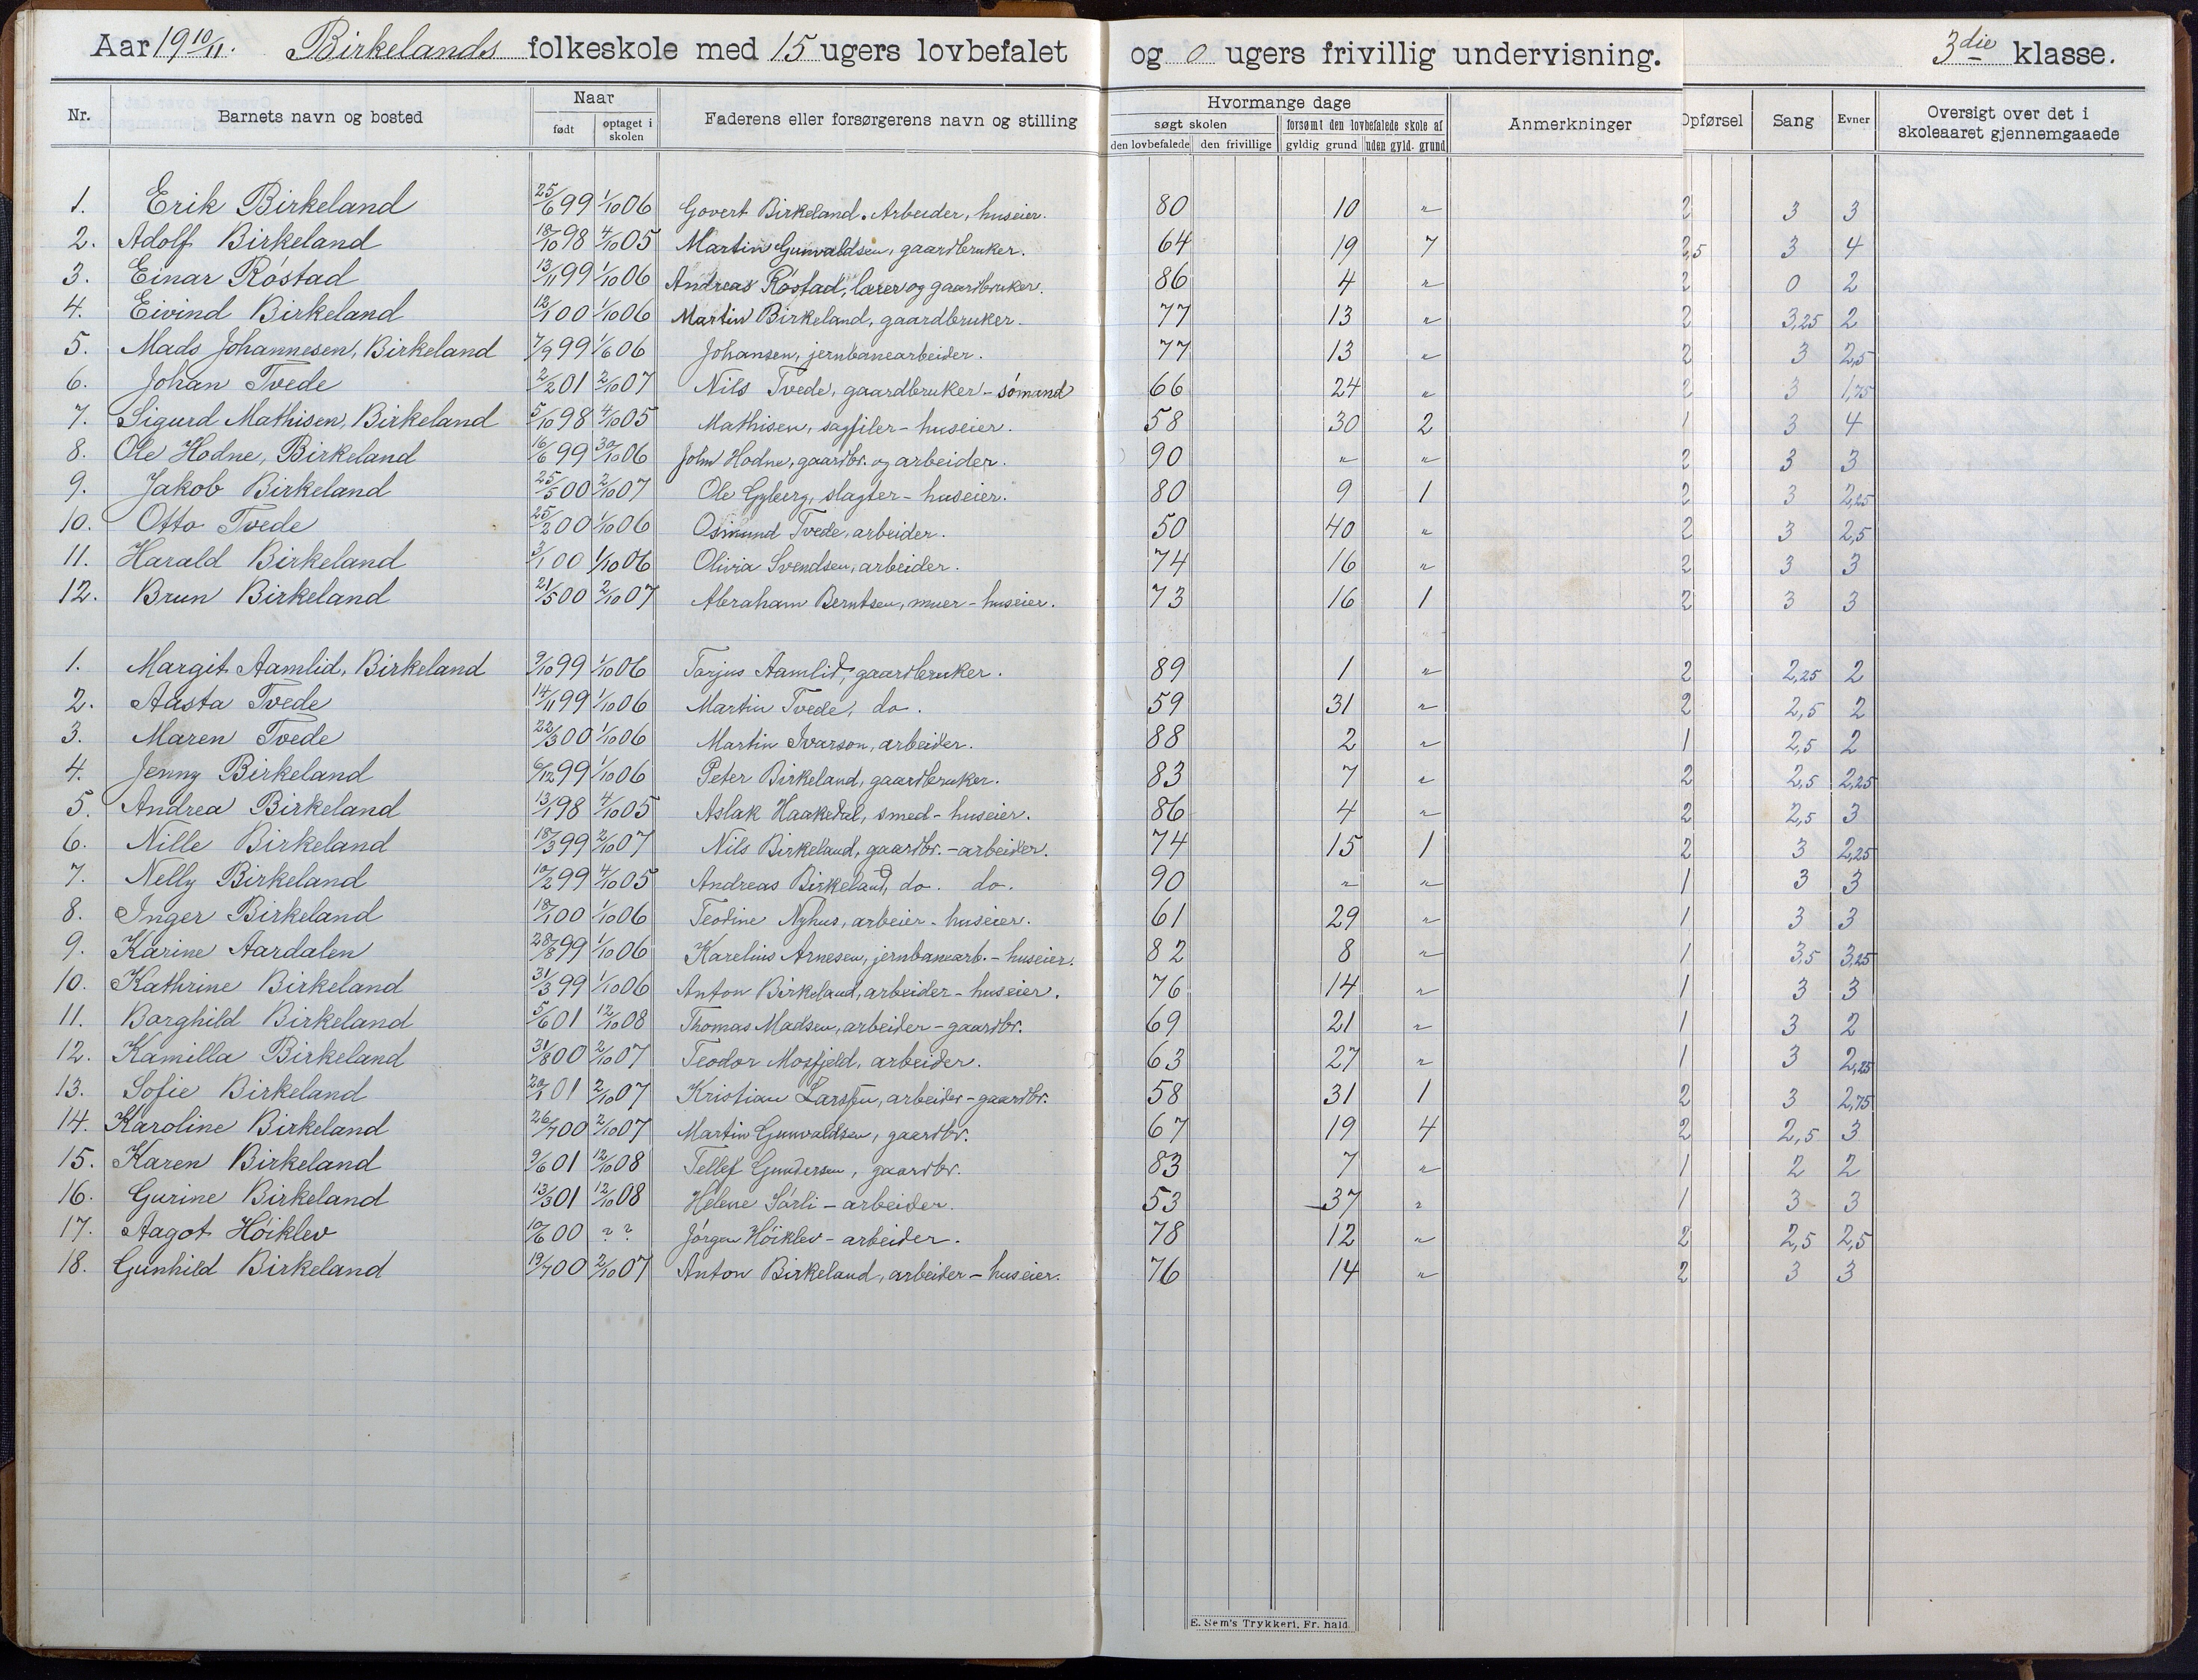 Aar 19 10/11. Birkelands folkeskole med 15 ugers lovbefalet og 0 ugers frivillig undervisning. 3die klasse.
Nr. Barnets navn og bosted Naar født optaget i skolen Faderens eller forsørgerens navn og stilling Hvormange dage søgt skolen den lovbefalede den frivillige forsømt den lovbefalede skole af gyldig grund uden gyld. grund Anmerkninger Opførsel Sang Evner Oversigt over det i skoleaaret gjennemgaaede
1. Erik Birkeland 25/6 99 1/10 06 Govert Birkeland. Arbeider, huseier. 80 10 " 2 3 3
2. Adolf Birkeland 18/10 98 4/10 05 Martin Gunvaldsen, gaardbruker. 64 19 7 2,5 3 4
3. Einar Röstad 13/11 99 1/10 06 Andreas Röstad, lærer og gaardbruker. 86 4 " 2 0 2
4. Eivind Birkeland 12/1 00 1/10 06 Martin Birkeland, gaardbruker. 77 13 " 2 3,25 2
5. Mads Johannesen, Birkeland 7/9 99 1/6 06 Johansen, jernbanearbeider. 77 13 " 2 3 2,5
6. Johan Tvede 2/2 01 2/10 07 Nils Tvede, gaardbruker - sömand 66 24 " 2 3 1,75
7. Sigurd Mathisen, Birkeland 5/10 98 4/10 05 Mathisen, sagfiler - huseier. 58 30 2 1 3 4
8. Ole Hodne, Birkeland 16/6 99 30/10 06 John Hodne, gaardbr. og arbeider. 90 " " 2 3 3
9. Jakob Birkeland 25/5 00 2/10 07 Ole Gyberg, slagter - huseier. 80 9 1 2 3 2,25
10. Otto Tvede 25/2 00 1/10 06 Osmund Tvede, arbeider. 50 40 " 2 3 2,5
11. Harald Birkeland 3/1 00 1/10 06 Olivia Svendsen, arbeider. 74 16 " 2 3 3
12. Brun Birkeland 21/5 00 2/10 07 Abraham Berntsen, muer - huseier. 73 16 1 2 3 3
1. Margit Aamlid, Birkeland 9/10 99 1/10 06 Tarjus Aamlid, gaardbruker. 89 1 " 2 2,25 2
2. Aasta Tvede 14/11 99 1/10 06 Martin Tvede, do. 59 31 " 2 2,5 2
3. Maren Tvede 22/3 00 1/10 06 Martin Ivarson, arbeider. 88 2 " 1 2,5 2
4. Jenny Birkeland 6/12 99 1/10 06 Peter Birkeland, gaardbruker. 83 7 " 2 2,5 2,25
5. Andrea Birkeland 13/1 98 4/10 05 Aslak Haakedal, smed - huseier. 86 4 " 2 2,5 3
6. Nille Birkeland 18/3 99 2/10 07 Nils Birkeland, gaardbr. - arbeider. 74 15 1 2 3 2,25
7. Nelly Birkeland 10/2 99 4/10 05 Andreas Birkeland, do. do. 90 " " 1 3 3
8. Inger Birkeland 18/1 00 1/10 06 Teodine Nyhus, arbeier - huseier. 61 29 " 1 3 3
9. Karine Aardalen 28/8 99 1/10 06 Karelius Arnesen, jernbanearb. - huseier. 82 8 " 1 3,5 3,25
10. Kathrine Birkeland 31/3 99 1/10 06 Anton Birkeland, arbeider - huseier. 76 14 " 1 3 3
11. Borghild Birkeland 5/6 01 12/10 08 Thomas Madsen, arbeider - gaardbr. 69 21 " 1 3 2
12. Kamilla Birkeland 31/8 00 2/10 07 Teodor Mosfjeld, arbeider. 63 27 " 1 3 2,25
13. Sofie Birkeland 20/1 01 2/10 07 Kristian Larsen, arbeider - gaardbr. 58 31 1 2 3 2,75
14. Karoline Birkeland 26/7 00 2/10 07 Martin Gunvaldsen, gaardbr. 67 19 4 2 2,5 3
15. Karen Birkeland 9/6 01 12/10 08 Tellef Gundersen, gaardbr. 83 7 " 1 2 2
16. Gurine Birkeland 13/3 01 12/10 08 Helene Sörli - arbeider. 53 37 " 1 3 3
17. Aagot Höiklev 10/6 00 ? ? Jörgen Höiklev - arbeider. 78 12 " 2 2,5 2,5
18. Gunhild Birkeland 19/7 00 2/10 07 Anton Birkeland, arbeider - huseier. 76 14 " 2 3 3
E. Sem's Trykkeri, Fr. hald